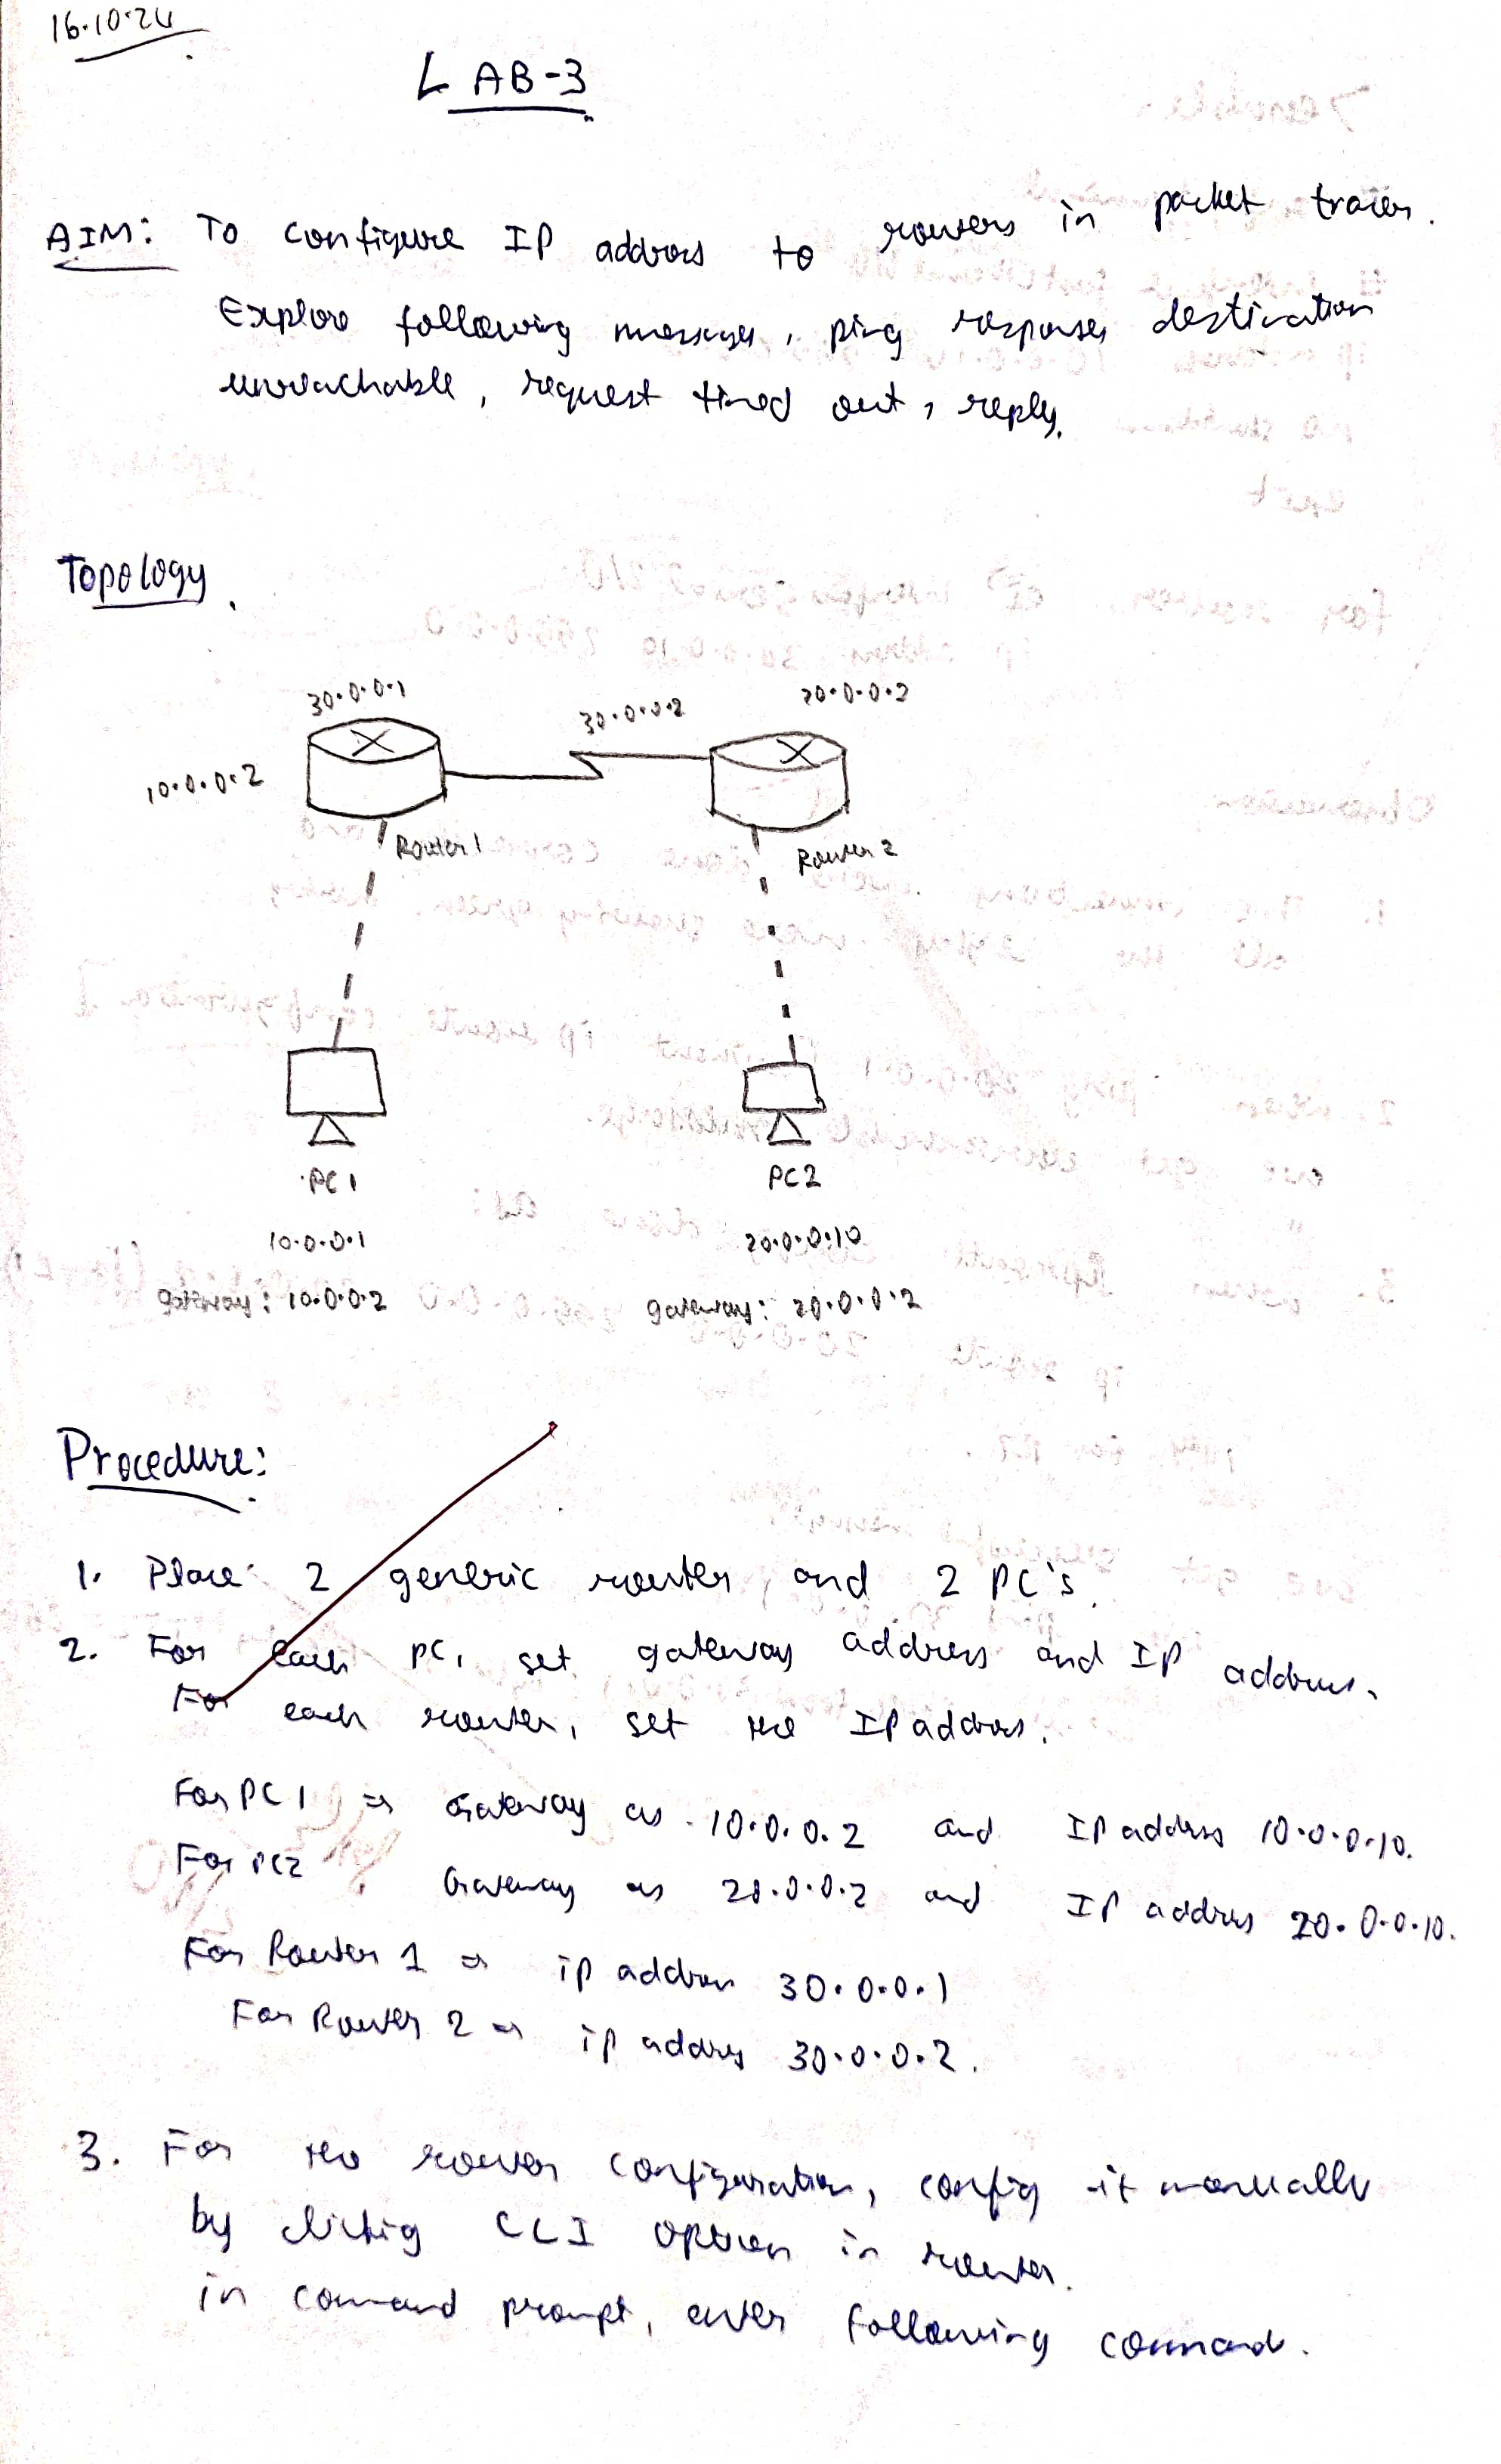 16.10.24
LAB-3
AIM: To configure IP address to routers in packet tracer.
Explore following messages, ping responses destination
unreachable, request timed out, reply.
Topology
30.0.0.1
30.0.0.2
20.0.0.2
10.0.0.2
Router 1
Router 2
PC 1
PC2
10.0.0.1
20.0.0.10
gateway: 10.0.0.2
gateway: 20.0.0.2
Procedure:
1. Place 2 generic router, and 2 PC's.
2. For each PC, set gateway address and IP address.
For each router, set the IP address.
For PC 1 ⇒ Gateway as 10.0.0.2 and IP address 10.0.0.10.
For PC2 Gateway as 20.0.0.2 and IP address 20.0.0.10.
For Router 1 ⇒ ip address 30.0.0.1
For Router 2 ⇒ ip address 30.0.0.2.
3. For the router configuration, config it manually
by clickig CLI option in router.
in command prompt, enter following command.